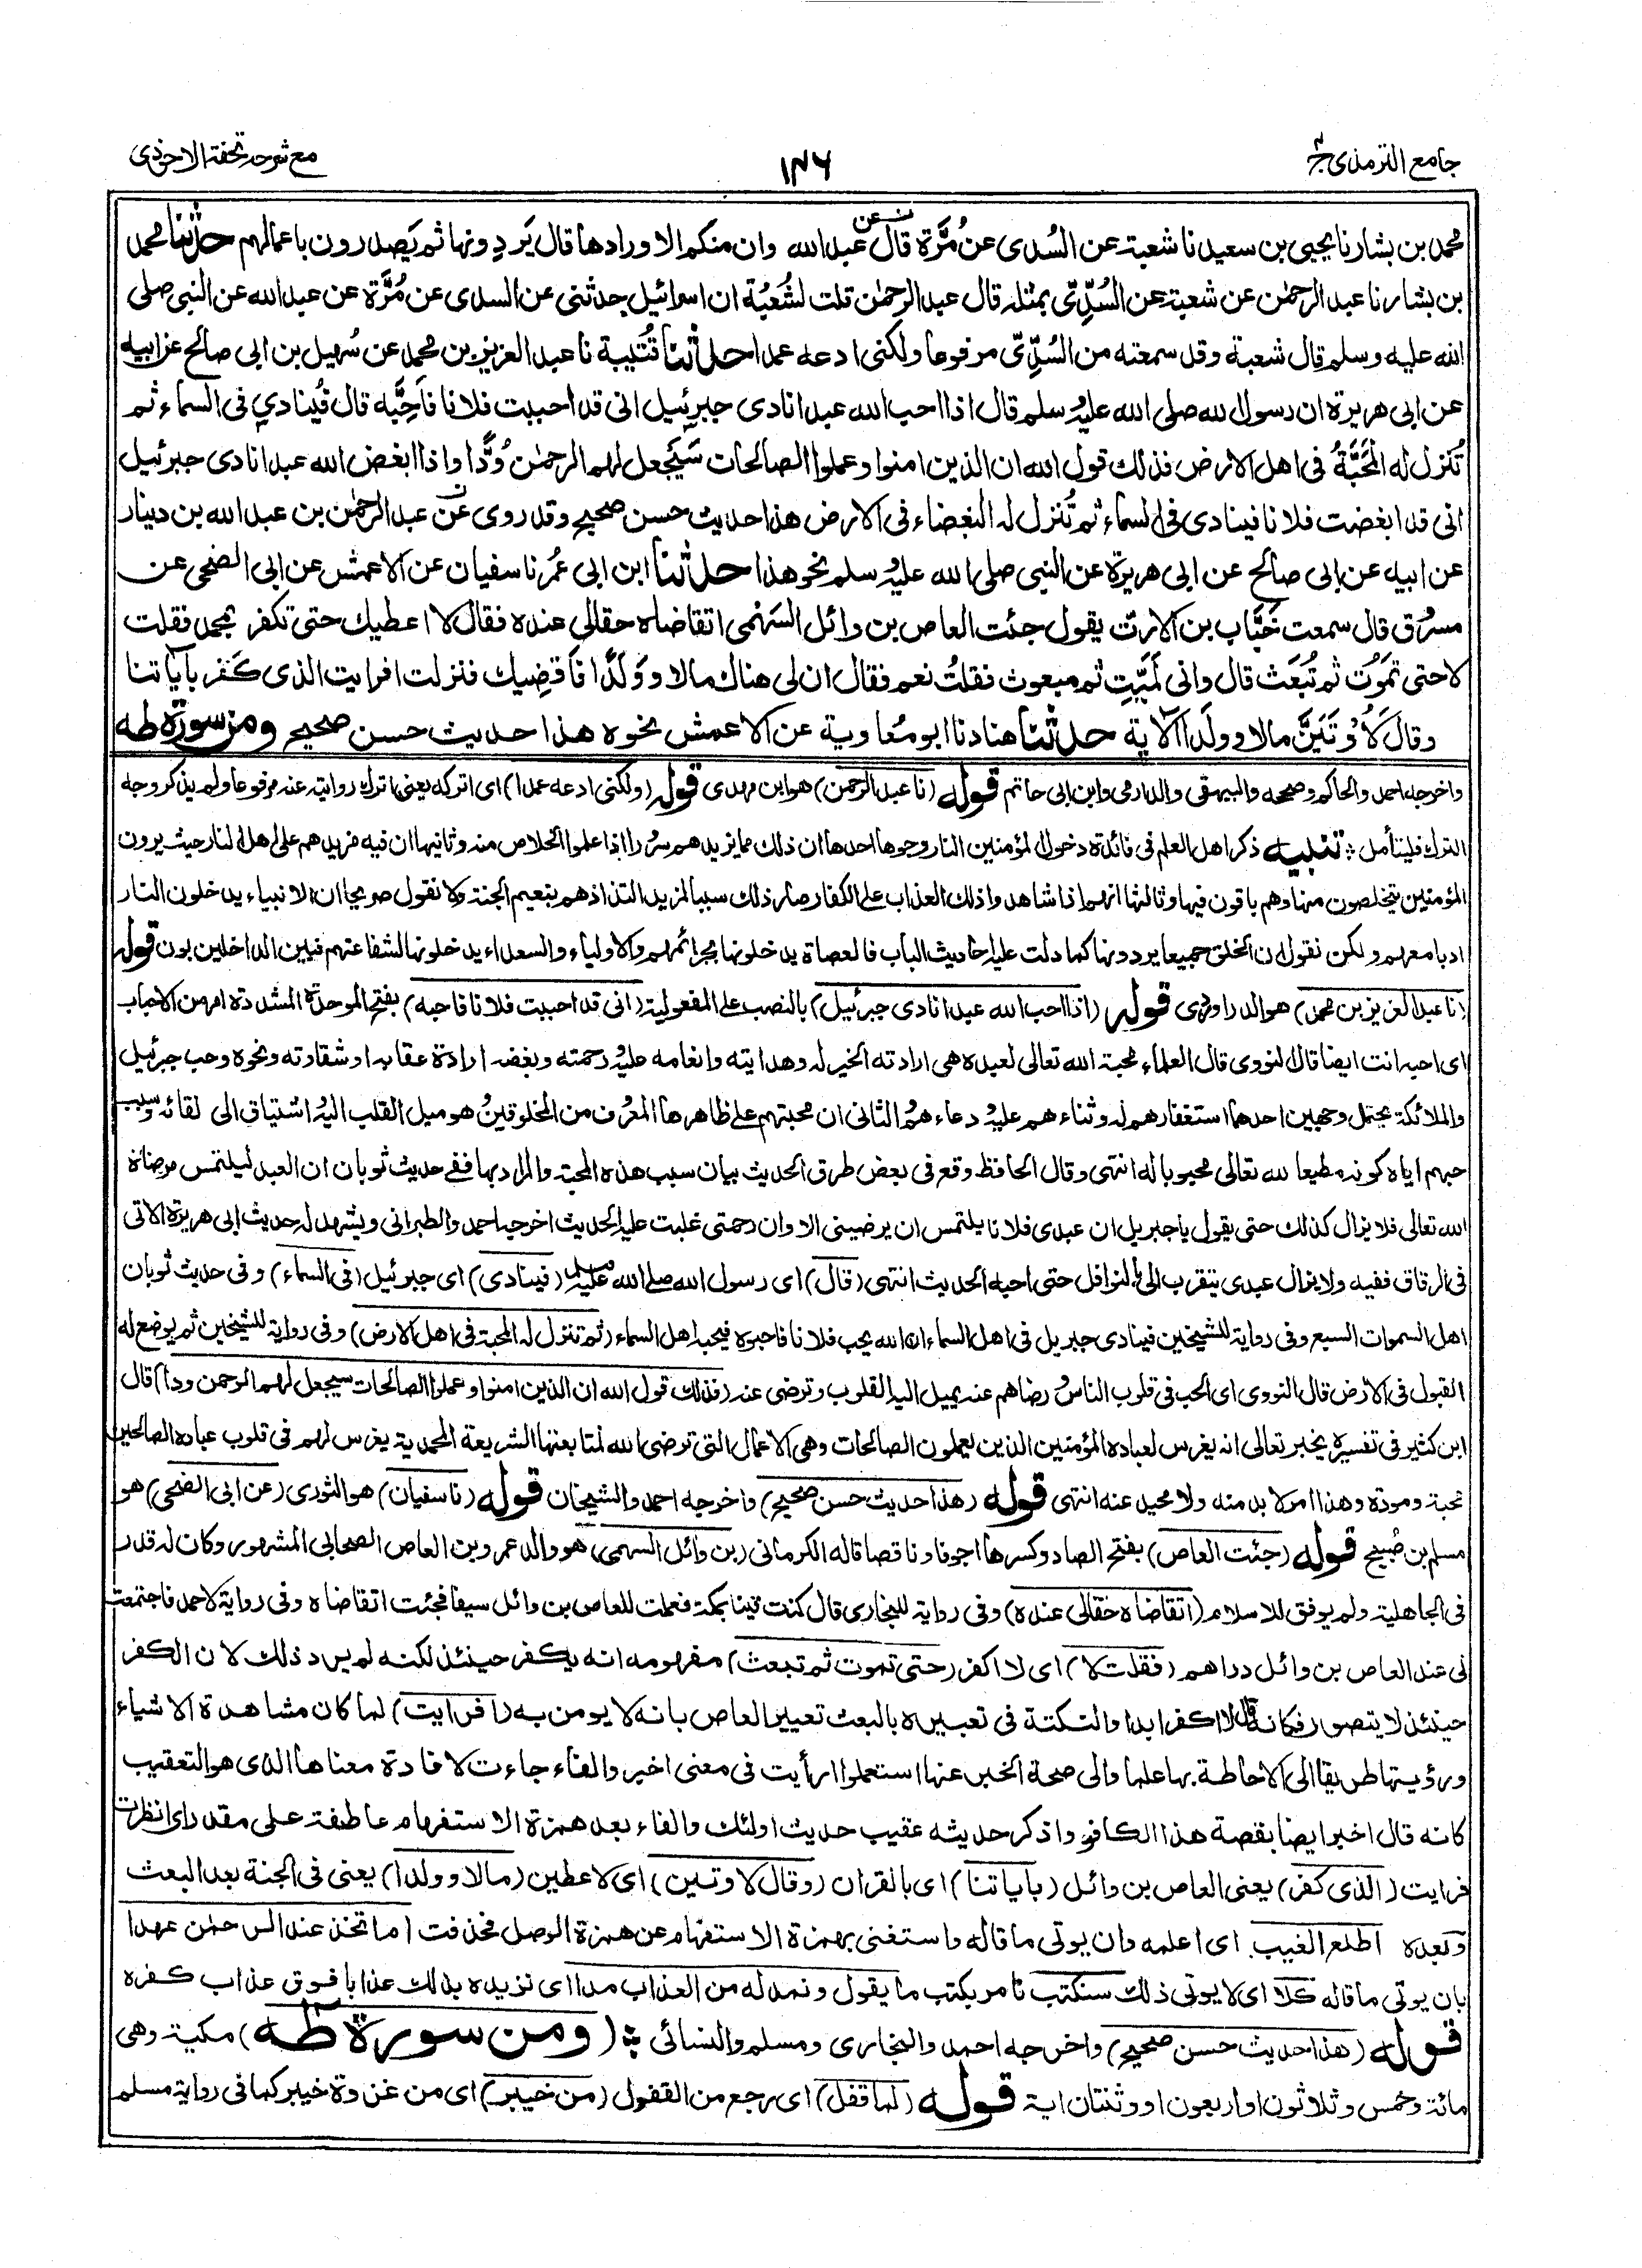 جامع الترمذي ج ٤
١٤٦
مع شرحه تحفة الاحوذي
محمد بن بشار نا يحيى بن سعيد نا شعبة عن السُدى عن مُرَّة قال عن عبد الله وان منكم الا واردها قال يَرِدونها ثم يَصدرون باعمالهم حدثنا محمد
بن بشار نا عبد الرحمٰن عن شعبة عن السُّدِّىّ بمثله قال عبد الرحمٰن قلت لشُعْبَة ان اسرائيل حدثنى عن السدى عن مُرَّة عن عبد الله عن النبى صلى
الله عليه وسلم قال شعبة وقد سمعته من السُدِّىّ مرفوعا ولكنى ادعه عمدا حدثنا قُتَيبة نا عبد العزيز بن محمد عن سُهيل بن ابى صالح عن ابيه
عن ابى هريرة ان رسول الله صلى الله عليه وسلم قال اذا احب الله عبدا نادى جبرئيل انى قد احببت فلانا فَأَحِبَّه قال فيُنادي فى السماء ثم
تُنزل له المَحَبَّةُ فى اهل الارض فذلك قول الله ان الذين امنوا وعملوا الصالحات سَيَجعل لهم الرحمٰن وُدًّا واذا ابغض الله عبدا نادى جبرئيل
انى قد ابغضت فلانا فينادى فى السماء ثم تُنزل له البغضاء فى الارض هذا حديث حسن صحيح وقد روى عن عبد الرحمٰن بن عبد الله بن دينار
عن ابيه عن ابى صالح عن ابى هريرة عن النبى صلى الله عليه وسلم نحو هذا حدثنا ابن ابى عُمر نا سفيان عن الاعمش عن ابى الضحى عن
مسرُوق قال سمعت خَبَّاب بن الارتّ يقول جئت العاص بن وائل السَهْمِى اتقاضاه حقا لى عنده فقال لا اعطيك حتى تكفر بمحمد فقلت
لا حتى تَمَوُت ثم تُبعَث قال وانى لَمَيِّت ثم مبعوث فقلتُ نعم فقال ان لى هناك مالا ووَلَدًا فَاَقضِيك فنزلت افرايت الذى كَفَر بآياتنا
وقال لَاُوْتَيَنَّ مالا وولدا الآية حدثنا هناد نا ابو مُعاوية عن الاعمش نحوه هذا حديث حسن صحيح ومن سورة طه
واخرجه احمد والحاكم وصححه والبيهقى والدارمى وابن ابى حاتم قوله (نا عبد الرحمن) هو ابن مهدى قوله (ولكنى ادعه عمدا) اى اتركه يعنى اترك روايته عنه مرفوعا ولم يذكر وجه
الترك فليتأمل ؞ تنبيه ذكر اهل العلم فى فائدة دخول المؤمنين النار وجوها احدها ان ذلك مما يزيدهم سرُورا اذا علموا الخلاص منه وثانيها ان فيه مزيد هم على اهل النار حيث يرون
المؤمنين يتخلصون منها وهم باقون فيها وثالثها انهم اذا شاهدوا ذلك العذاب على الكفار صار ذلك سببا لمزيد التذاذهم بنعيم الجنة ولا نقول صريحا ان الانبياء يدخلون النار
ادبا معهم ولكن نقول ان الخلق جميعا يردونها كما دلت عليه احاديث الباب فالعصاة يدخلونها بجرائمهم والاولياء والسعداء يدخلونها لشفاعتهم فبين الداخلين بون قوله
(نا عبد العزيز بن محمد) هو الدراوردى قوله (اذا احب الله عبدا نادى جبرئيل) بالنصب على المفعولية (انى قد احببت فلانا فاحبه) بفتح الموحدة المشددة امر من الاحباب
اى احبه انت ايضا قال النووى قال العلماء محبة الله تعالى لعبده هى ارادته الخير له وهدايته وانعامه عليه ورحمته وبغضه ارادة عقابه او شقاوته ونحوه وحب جبرئيل
والملائكة يحتمل وجهين احدهما استغفارهم له وثناءهم عليه ودعاءهم والثانى ان محبتهم على ظاهرها المعرُوف من المخلوقين وهو ميل القلب اليه واشتياق الى لقائه وسبب
حبهم اياه كونه مطيعا لله تعالى محبوبا له انتهى وقال الحافظ وقع فى بعض طرق الحديث بيان سبب هذه المحبة والمراد بها ففى حديث ثوبان ان العبد ليلتمس مرضاة
الله تعالى فلا يزال كذلك حتى يقول يا جبريل ان عبدى فلانا يلتمس ان يرضينى الا وان رحمتى غلبت عليه الحديث اخرجه احمد والطبرانى ويشهد له حديث ابى هريرة الاتى
فى الرقاق ففيه ولا يزال عبدى يتقرب الى بالنوافل حتى احبه الحديث انتهى (قال) اى رسول الله صلى الله عليه وسلم (فينادى) اى جبرئيل (فى السماء) وفى حديث ثوبان
اهل السموات السبع وفى رواية للشيخين فينادى جبريل فى اهل السماء ان الله يحب فلانا فاحبوه فيحبه اهل السماء (ثم تنزل له المحبة فى اهل الارض) وفى رواية للشيخين ثم يوضع له
القبول فى الارض قال النووى اى الحب فى قلوب الناس ورضاهم عنه يميل اليه القلوب وترضى عنه (فذلك قول الله ان الذين امنوا وعملوا الصالحات سيجعل لهم الرحمن ودا) قال
ابن كثير فى تفسيره يخبر تعالى انه يغرس لعباده المؤمنين الذين يعملون الصالحات وهى الاعمال التى ترضى الله لمتابعتها الشريعة المحمدية يغرس لهم فى قلوب عباده الصالحين
محبة ومودة وهذا امر لا بد منه ولا محيد عنه انتهى قوله (هذا حديث حسن صحيح) واخرجه احمد والشيخان قوله (نا سفيان) هو الثورى (عن ابى الضحى) هو
مسلم بن صُبيح قوله (جئت العاص) بفتح الصاد وكسرها اجوفا وناقصا قاله الكرمانى (بن وائل السهمى) هو والد عمرو بن العاص الصحابى المشهور وكان له قدر
فى الجاهلية ولم يوفق للاسلام (اتقاضاه حقا لى عنده) وفى رواية للبخارى قال كنت قينا بمكة فعملت للعاص بن وائل سيفا فجئت اتقاضاه وفى رواية لاحمد فاجتمعت
لى عند العاص بن وائل دراهم (فقلت لا) اى لا اكفر (حتى تموت ثم تبعث) مفهومه انه يكفر حينئذ لكنه لم يرد ذلك لان الكفر
حينئذ لا يتصور فكانه قال لا اكفر ابدا والنكتة فى تعبيره بالبعث تعيير العاص بانه لا يومن به (افرايت) لما كان مشاهدة الاشياء
ورؤيتها طريقا الى الاحاطة بها علما والى صحة الخبر عنها استعملوا ارأيت فى معنى اخبر والفاء جاءت لافادة معناها الذى هو التعقيب
كانه قال اخبر ايضا بقصة هذا الكافر واذكر حديثه عقيب حديث اولئك والفاء بعد همزة الاستفهام عاطفة على مقدر اى انظرت
فرايت (الذى كفر) يعنى العاص بن وائل (باياتنا) اى بالقران (وقال لاوتين) اى لاعطين (مالا وولدا) يعنى فى الجنة بعد البعث
وبعده اطلع الغيب اى اعلمه وان يوتى ما قاله واستغنى بهمزة الاستفهام عن همزة الوصل فحذفت ام اتخذ عند الرحمٰن عهدا
بان يوتى ما قاله كلا اى لا يوتى ذلك سنكتب نامر بكتب ما يقول ونمد له من العذاب مدا اى نزيده بذلك عذابا فوق عذاب كفره
قوله (هذا حديث حسن صحيح) واخرجه احمد والبخارى ومسلم والنسائى ؞ (ومن سورة طه) مكية وهى
مائة وخمس وثلاثون او اربعون او وثنتان اية قوله (لما قفل) اى رجع من القفول (من خيبر) اى من غزوة خيبر كما فى رواية مسلم